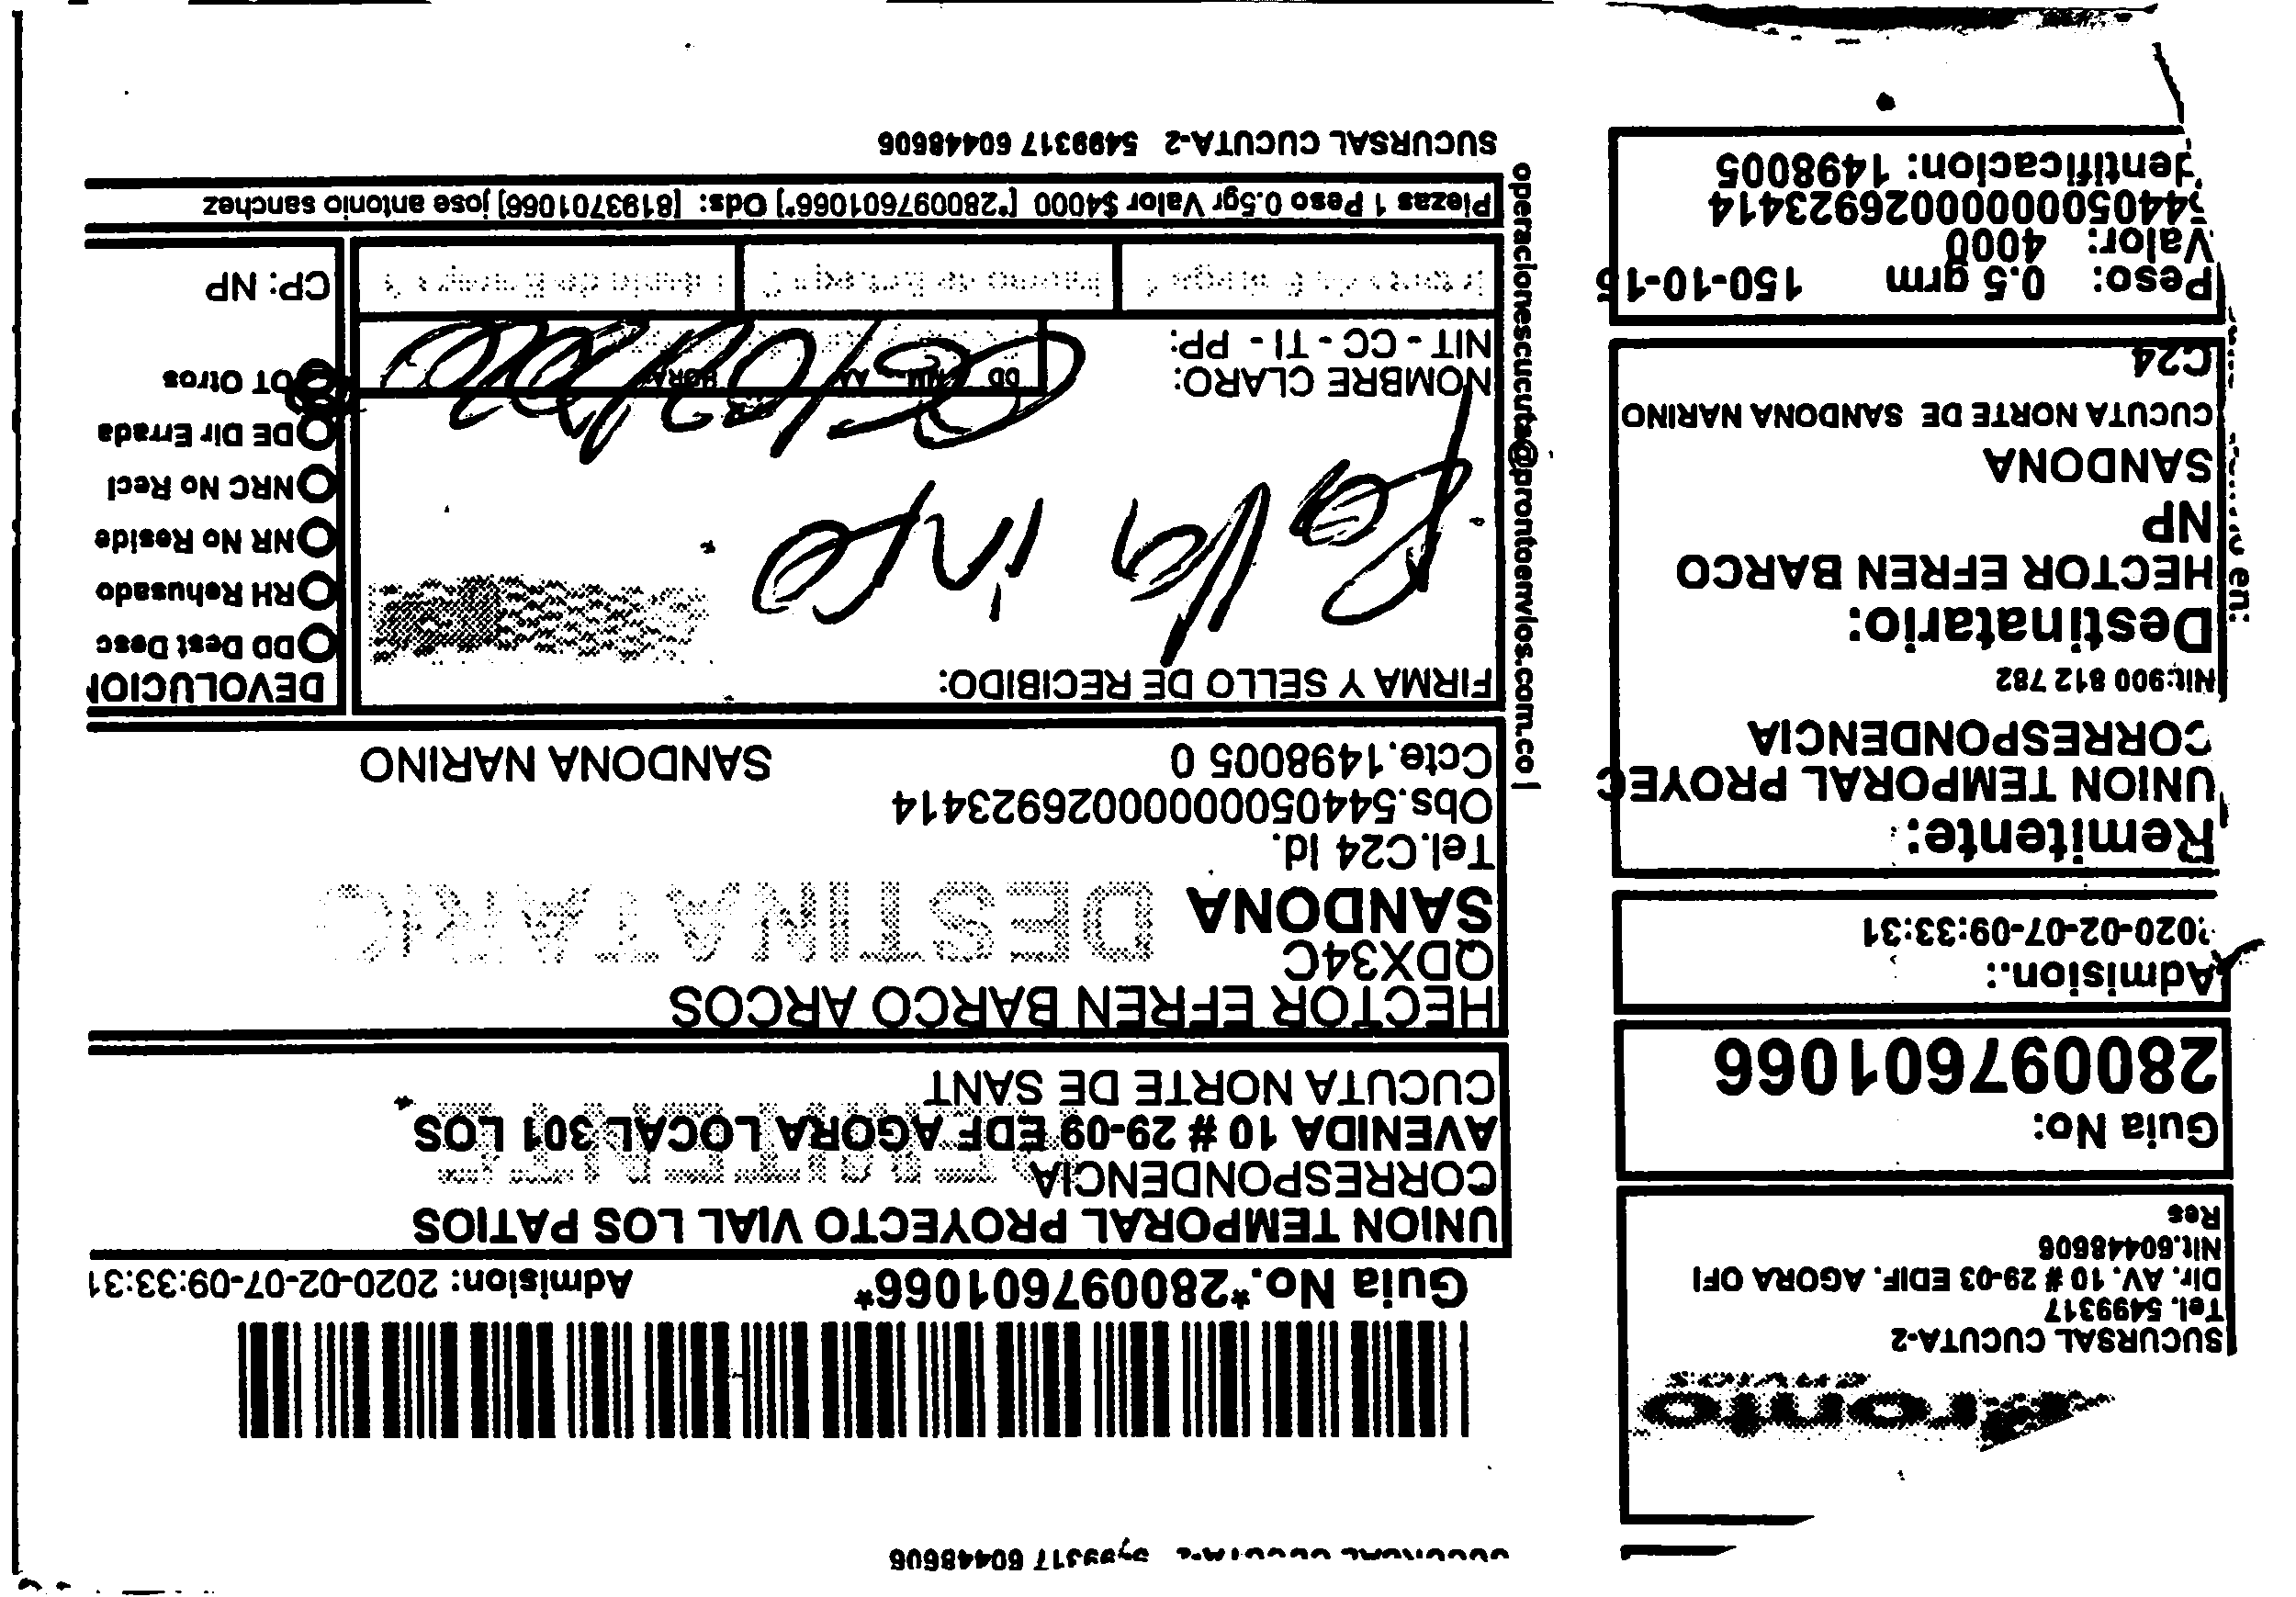 Pronto
SUCURSAL CUCUTA-2
Tel. 5499317
Dir. AV. 10 # 29-03 EDIF. AGORA OFI
Nit.60448606
Res
Guia No:
280097601066
Admision.:
2020-02-07-09:33:31
Remitente:
UNION TEMPORAL PROYEC
CORRESPONDENCIA
Nit:900 812 782
Destinatario:
HECTOR EFREN BARCO
NP
SANDONA
CUCUTA NORTE DE SANDONA NARINO
C24
Peso: 0.5 grm 150-10-15
Valor: 4000
54405000000026923414
dentificacion: 1498005
5499317 60448606
Guia No.*280097601066* Admision: 2020-02-07-09:33:31
UNION TEMPORAL PROYECTO VIAL LOS PATIOS
CORRESPONDENCIA
AVENIDA 10 # 29-09 EDF AGORA LOCAL 301 LOS
CUCUTA NORTE DE SANT
REMITENTE
HECTOR EFREN BARCO ARCOS
QDX34C
SANDONA
DESTINATARIO
Tel.C24 Id.
Obs.54405000000026923414
Ccte.1498005 0 SANDONA NARINO
FIRMA Y SELLO DE RECIBIDO:
NOMBRE CLARO:
NIT - CC - TI - PP:
DD MM AA HORA
DEVOLUCION
DD Dest Desc
RH Rehusado
NR No Reside
NRC No Recl
DE Dir Errada
OT Otros
CP: NP
Piezas 1 Peso 0.5gr Valor $4000 [*280097601066*] Ods: [8193701066] jose antonio sanchez
SUCURSAL CUCUTA-2 5499317 60448606
operacionescucuta@prontoenvios.com.co |